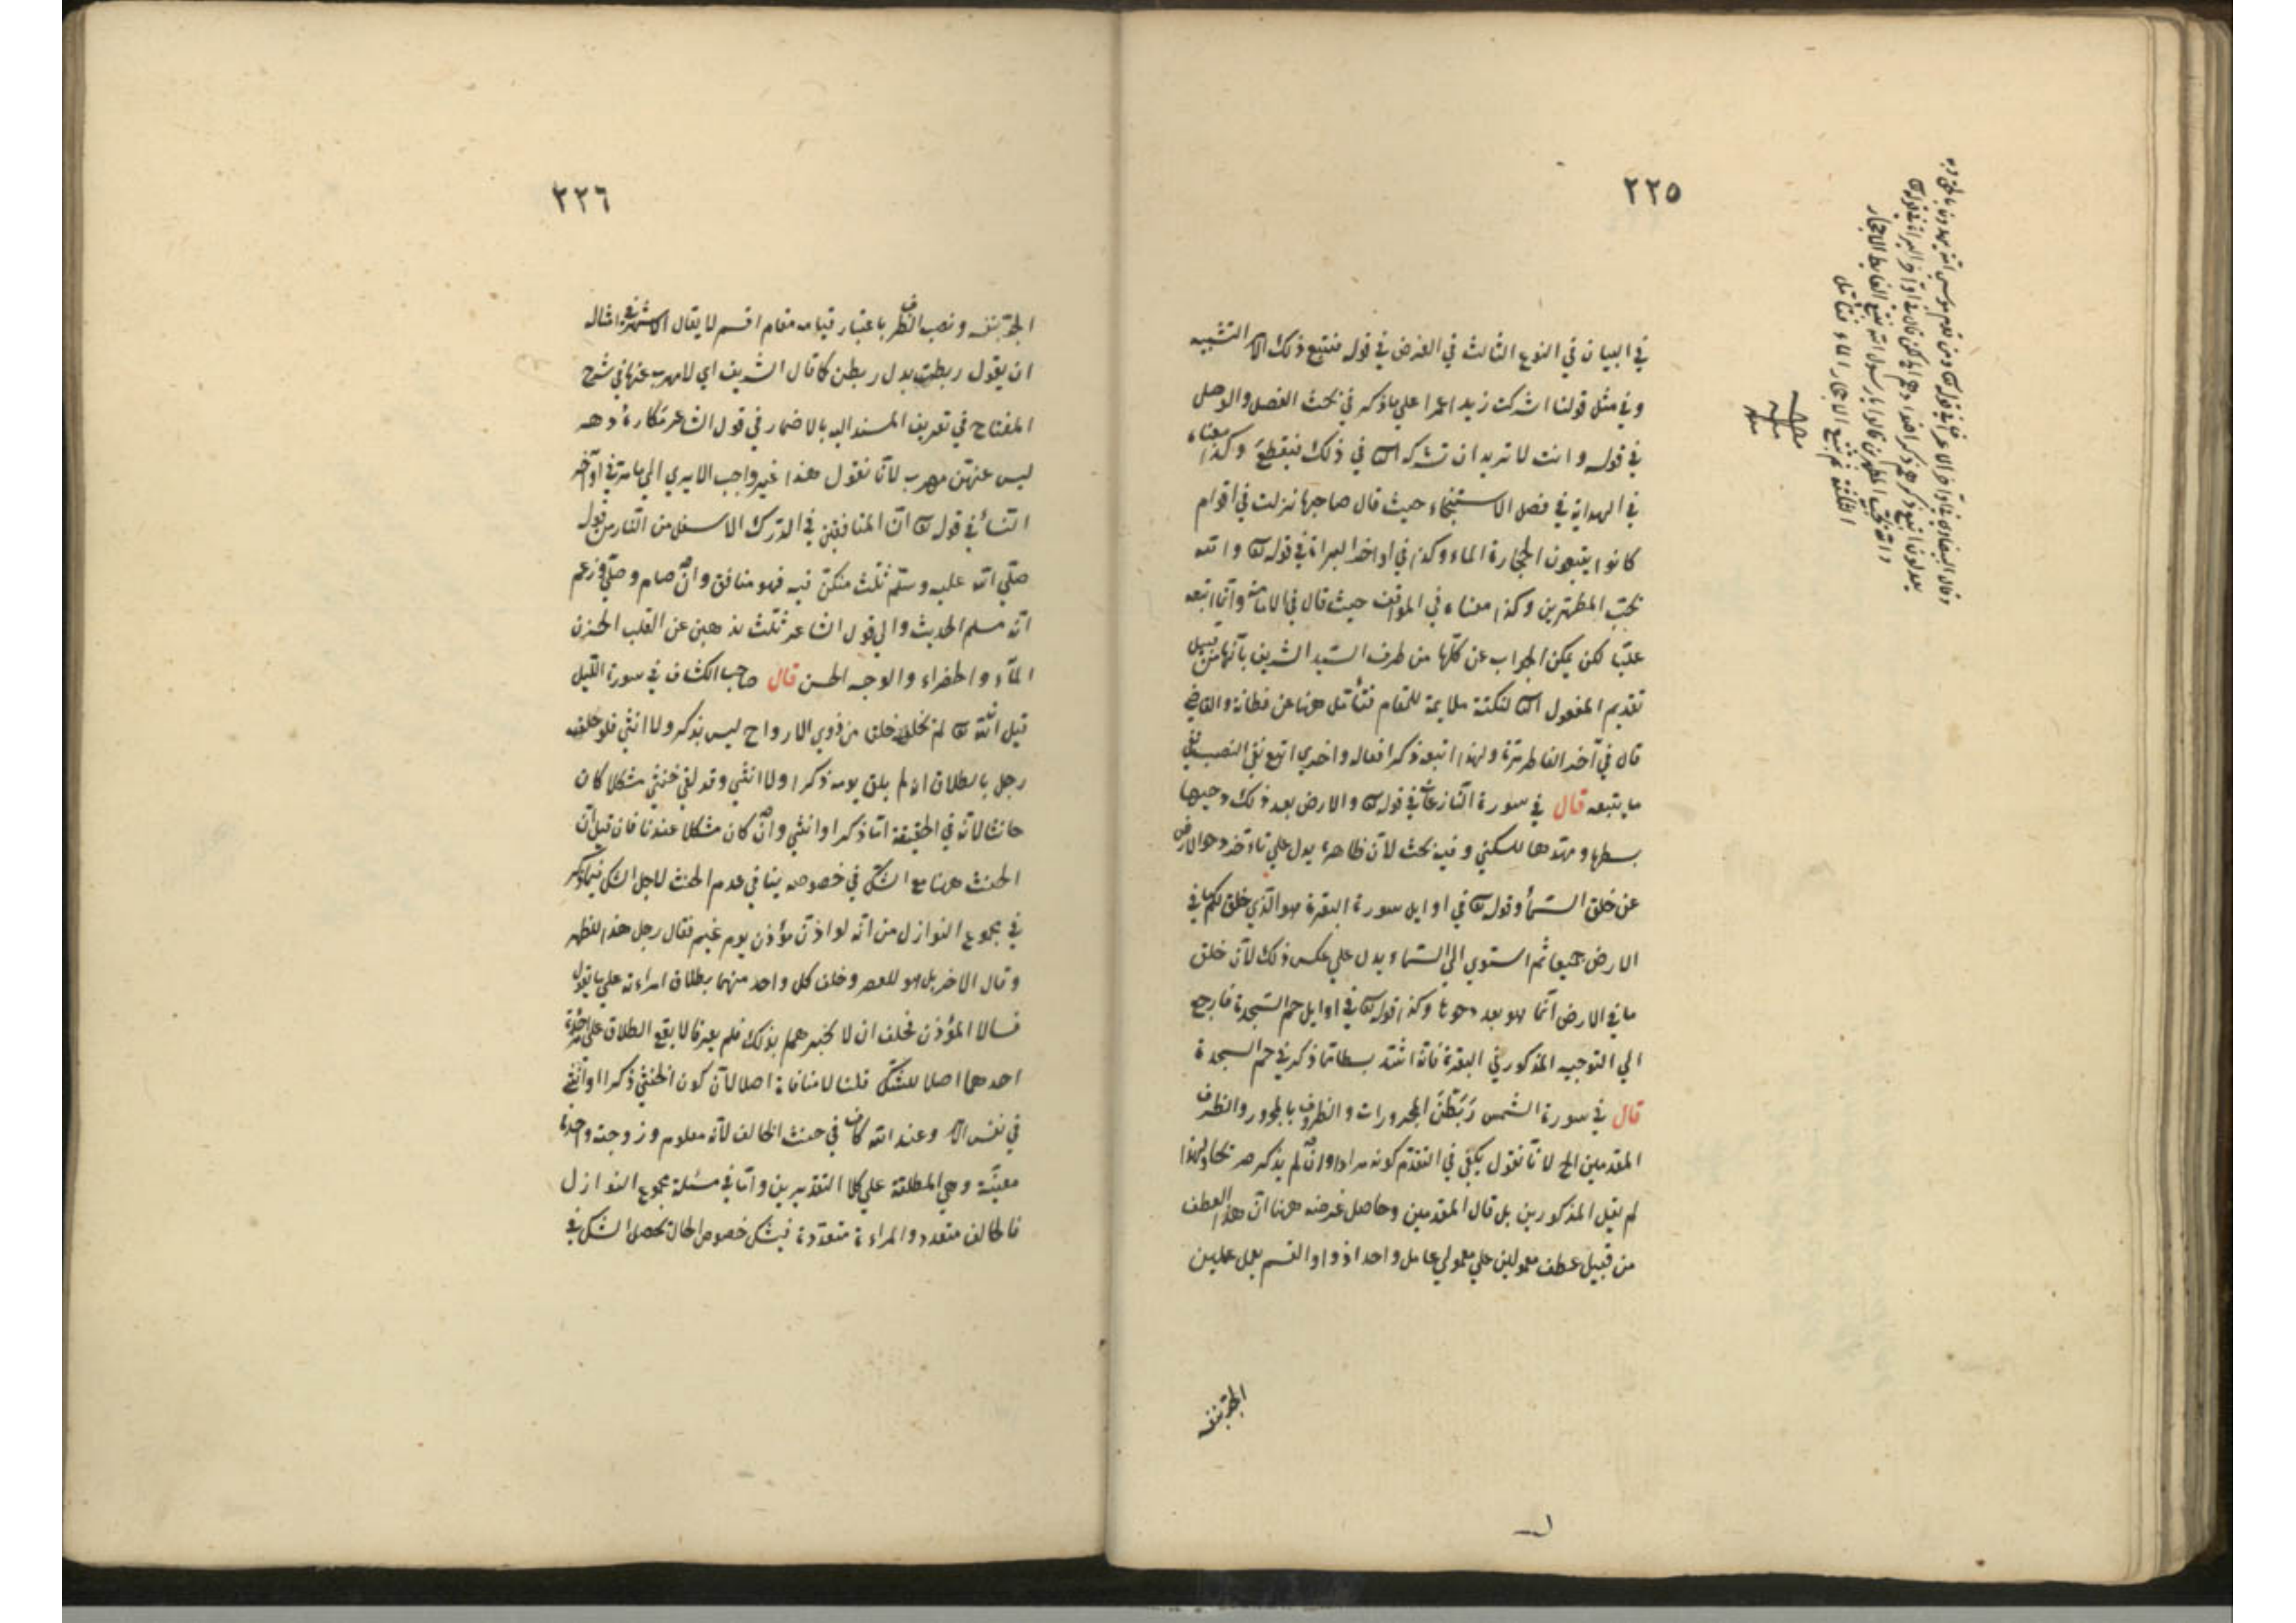 ٢٢٥
في البيان في النوع الثالث في الغرض في قوله فنتبع ذلك الامر التشبيه
وفي مثل قولنا اشركت زيدا عمرا على ما ذكر في بحث الفصل والوصل
في قوله وانت لا تريد ان تشركه في ذلك فيقطع وكذا معناه
في الهداية في فصل الاستنجاء حيث قال صاحبها نزلت في اقوام
كانوا يتبعون الحجارة الماء وكذا في اواخر البراءة في قوله تع والله
يحب المطهرين وكذا معناه في المواقف حيث قال في الامامة وانا اتبعه
عليا لكن يمكن الجواب عن كلها من طرف السيد الشريف بانها من قبيل
تقديم المفعول الثاني لنكتة ملايمة للمقام فتأمل هنا عن فطانة والقاضي
قال في آخر الفاطر مرة ولهذا اتبعه ذكر افعاله واخرى اتبع نفي النصيب
ما يتبعه قال في سورة النازعات في قوله تع والارض بعد ذلك دحيها
بسطها ومهدها للسكنى وفيه بحث لان ظاهره يدل على تاخر دحو الارض
عن خلق السماء وقوله تع في اوايل سورة البقرة هو الذي خلق لكم ما في
الارض جميعا ثم استوى الى السماء يدل على عكس ذلك لان خلق
ما في الارض انما هو بعد دحوها وكذا قوله تع في اوايل حم السجدة فارجع
الى التوجيه المذكور في البقرة فانه اشد بسطا مما ذكر في حم السجدة
قال في سورة الشمس رَبَطْنَ المجرورات والظروف بالمجرور والظرف
المقدمين الخ لانا نقول يكفي في التقدم كونه مرادا وان لم يذكر صريحا ولهذا
لم يقل المذكورين بل قال المقدمين وحاصل غرضه هنا ان هذا العطف
من قبيل عطف معمولين على معمولي عامل واحد اذ واو القسم يعمل عملين
الجر بنفسه
اللتنة ثم نتبع الاحجار الماء فتأمل
٢٢٦
الجر بنفسه ونصب الظرف باعتبار قيامه مقام اقسم لا يقال الاشهر في امثاله
ان يقول ربطت بدل ربطن كما قال الشريف اي لا مهرب عنها في شرح
المفتاح في تعريف المسند اليه بالاضمار في قول الشاعر مكاره دهر
ليس عنهن مهرب لانا نقول هذا غير واجب الا يرى الى ما مر في اواخر
النساء في قوله تع ان المنافقين في الدرك الاسفل من النار من قوله
صلى الله عليه وسلم ثلث من كن فيه فهو منافق وان صام وصلى وزعم
انه مسلم الحديث والى قول الشاعر ثلث يذهبن عن القلب الحزن
الماء والخضراء والوجه الحسن قال صاحب الكشاف في سورة الليل
قيل ان الله تع لم يخلق خلقا من ذوي الارواح ليس بذكر ولا انثى فلو حلف
رجل بالطلاق انه لم يلق يومه ذكرا ولا انثى وقد لقي خنثى مشكلا كان
حانثا لانه في الحقيقة اما ذكر او انثى وان كان مشكلا عندنا فان قيل ان
الحنث هنا مع الشك في خصوصه ينافي عدم الحنث لاجل الشك فيما ذكر
في مجموع النوازل من انه لو اذن مؤذن يوم غيم فقال رجل هذا للظهر
وقال الاخر بل هو للعصر وحلف كل واحد منهما بطلاق امراته على ما يقول
فسالا المؤذن فحلف ان لا يخبرهما بذلك فلم يعرفا لا يقع الطلاق على امراة
احدهما اصلا للشك قلنا لا منافاة اصلا لان كون الخنثى ذكرا او انثى
في نفس الامر وعند الله كاف في حنث الحالف لانه معلوم وزوجته واحدة
معينة وهي المطلقة على كلا التقديرين واما في مسئلة مجموع النوازل
فالحالف متعدد والمراءة متعددة فيشك خصوص الحال بحصل الشك في